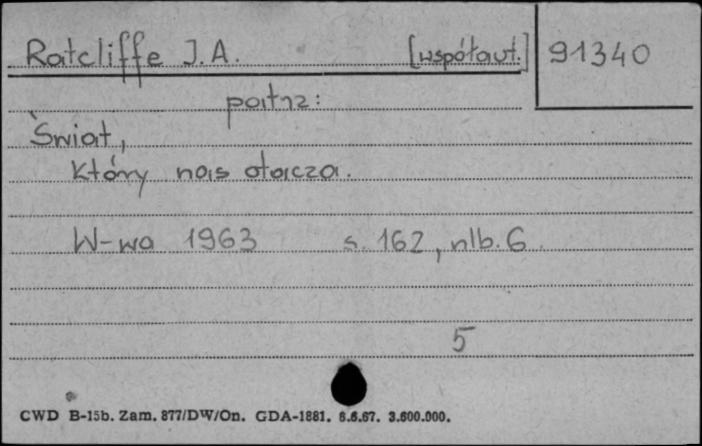 Ratcliffe J.A. [współaut.] 91340
patrz:
Świat,
który nas otacza.
W-wa 1963 s. 162, nlb. 6.
5
CWD B-15b. Zam. 877/DW/On. GDA-1881. 6.6.67. 3.600.000.